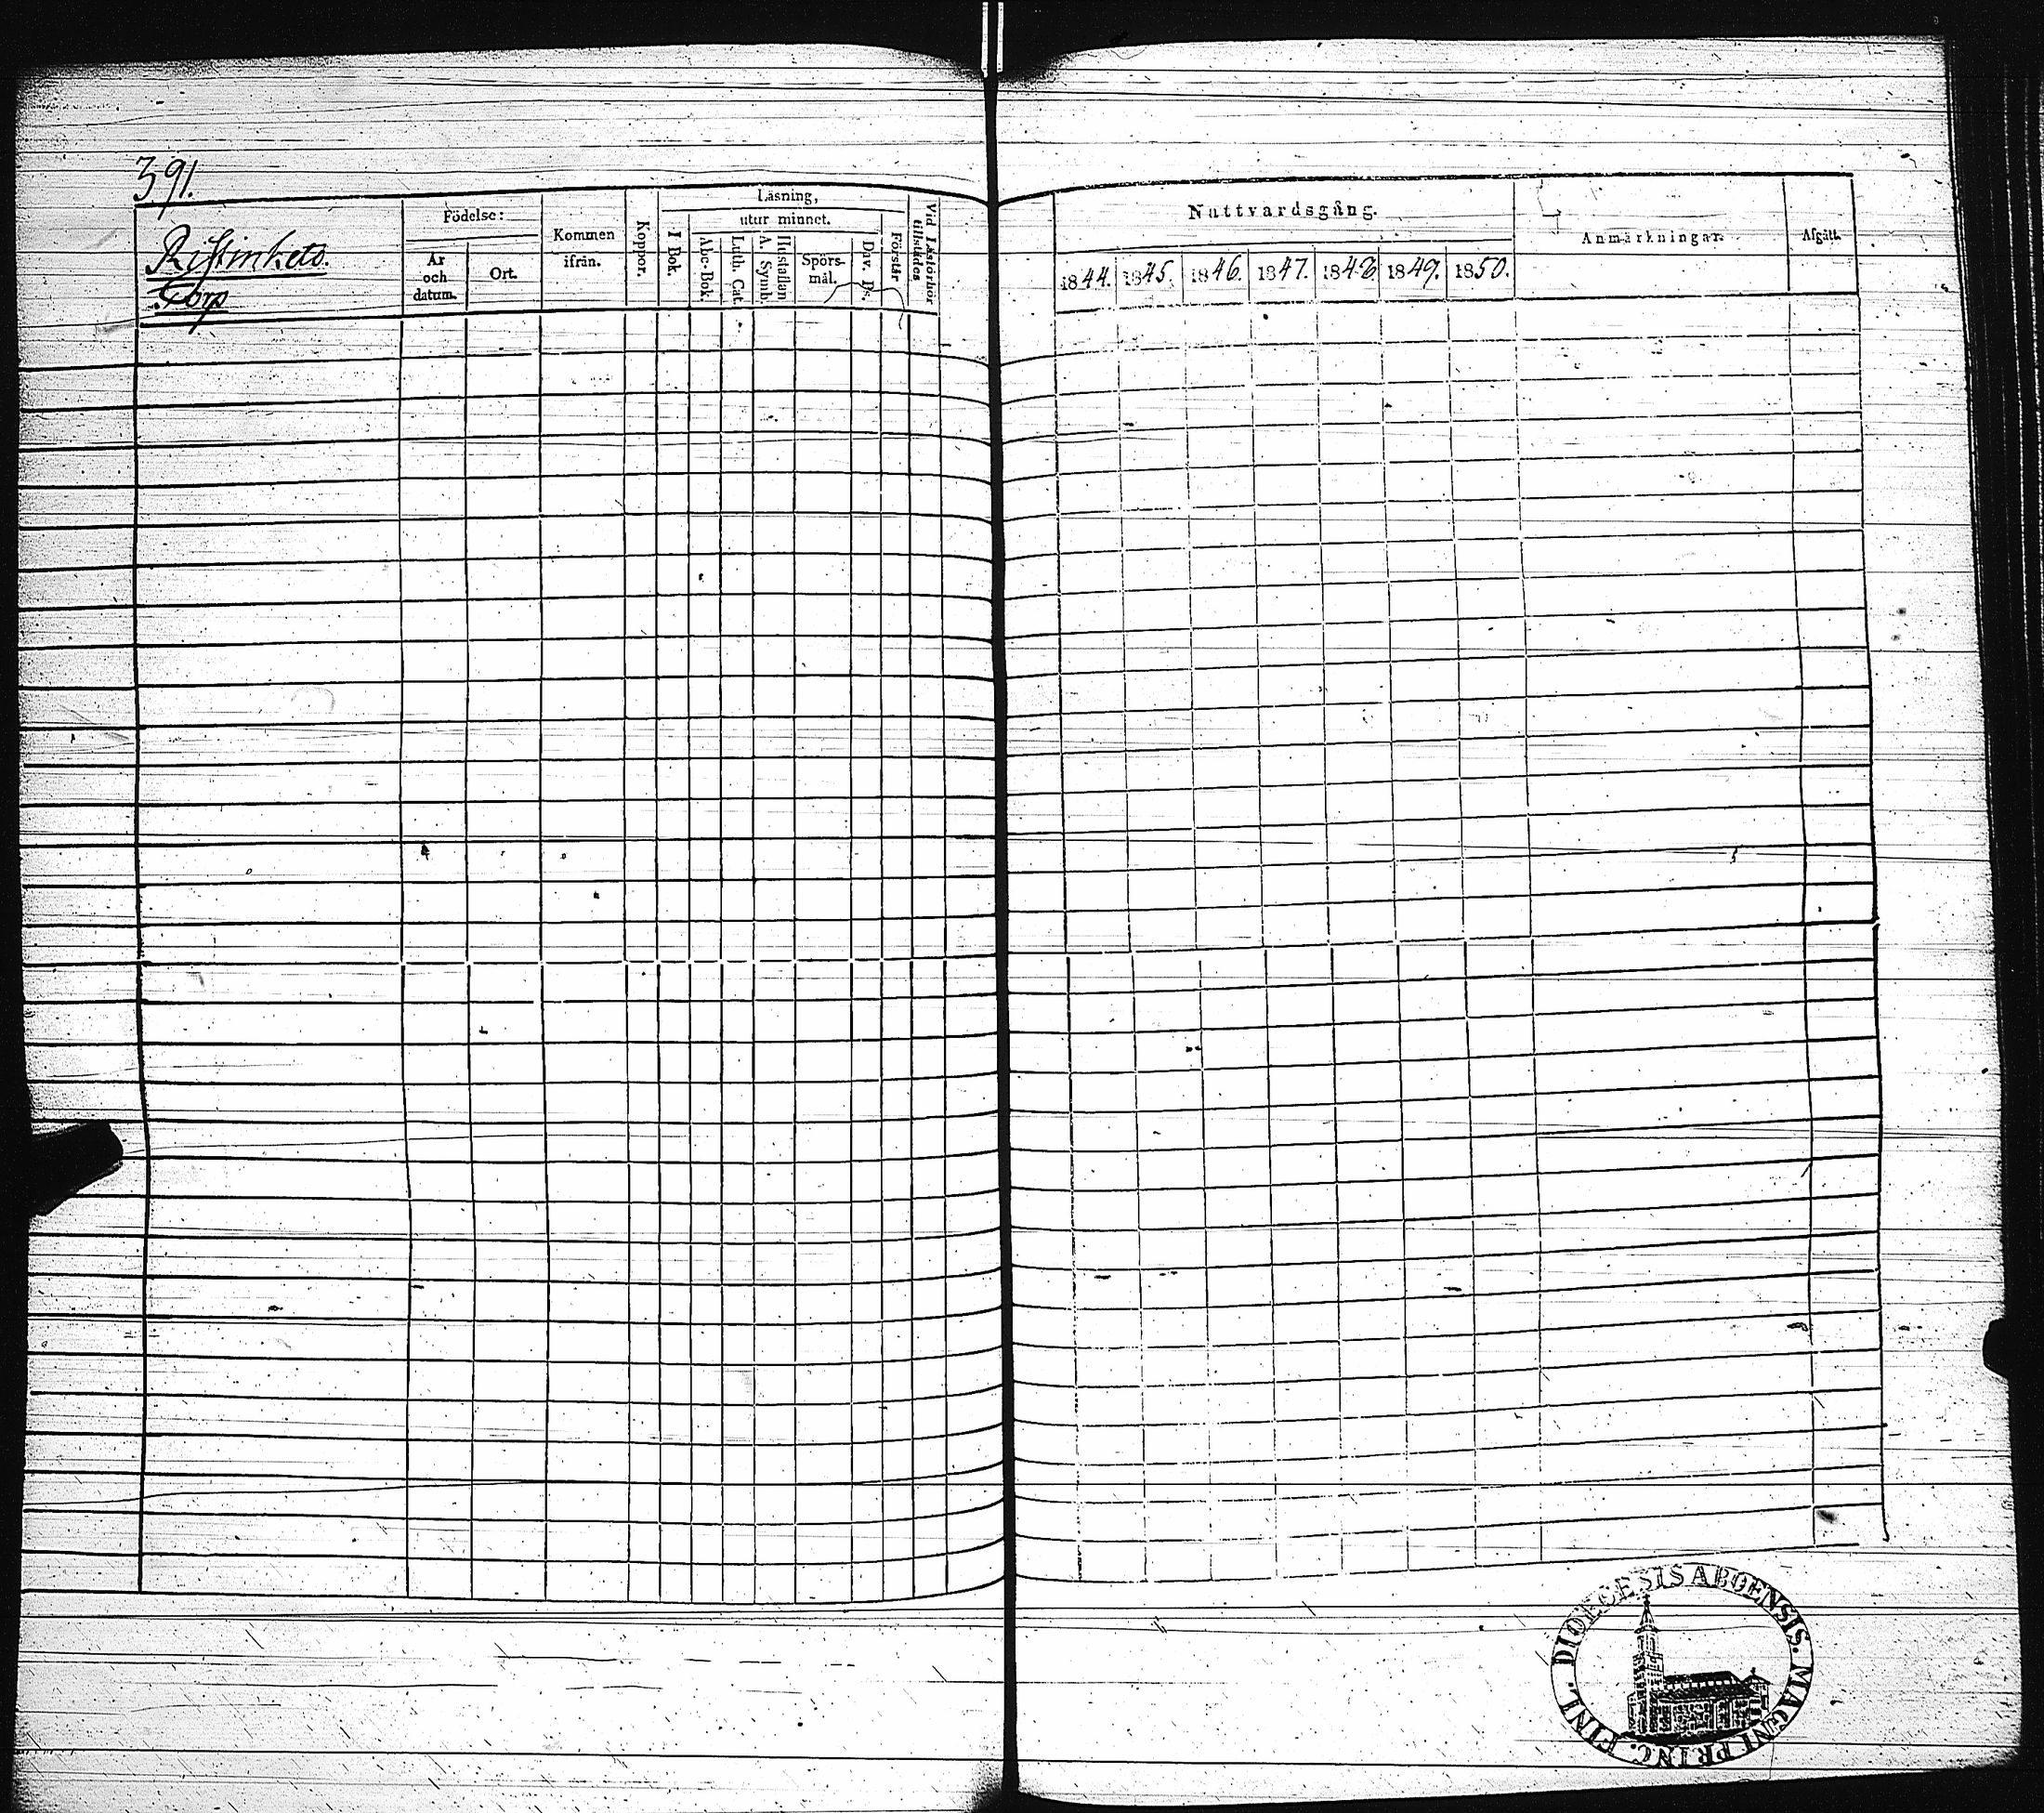 391.
Ristimketo.
Torp
Födelse:
År
och
datum.
Ort.
Kommen
ifrån.
Koppor.
Läsning,
utur minnet.
I Bok.
Abc-Bok.
Luth. Cat.
Hustaflan
A. Symb.
Spörs-
mål.
Dav. Ps.
Förstår.
Vid Läsförhör
tillstädes
Nattvardsgång.
1844.
1845.
1846.
1847.
1848
1849.
1850.
Anmärkningar.
Afgått.
DIOECESIS ABOENSIS. MAGNI PRINC. FINL.